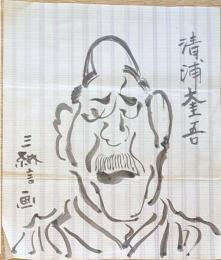 清浦奎吾
三納言画